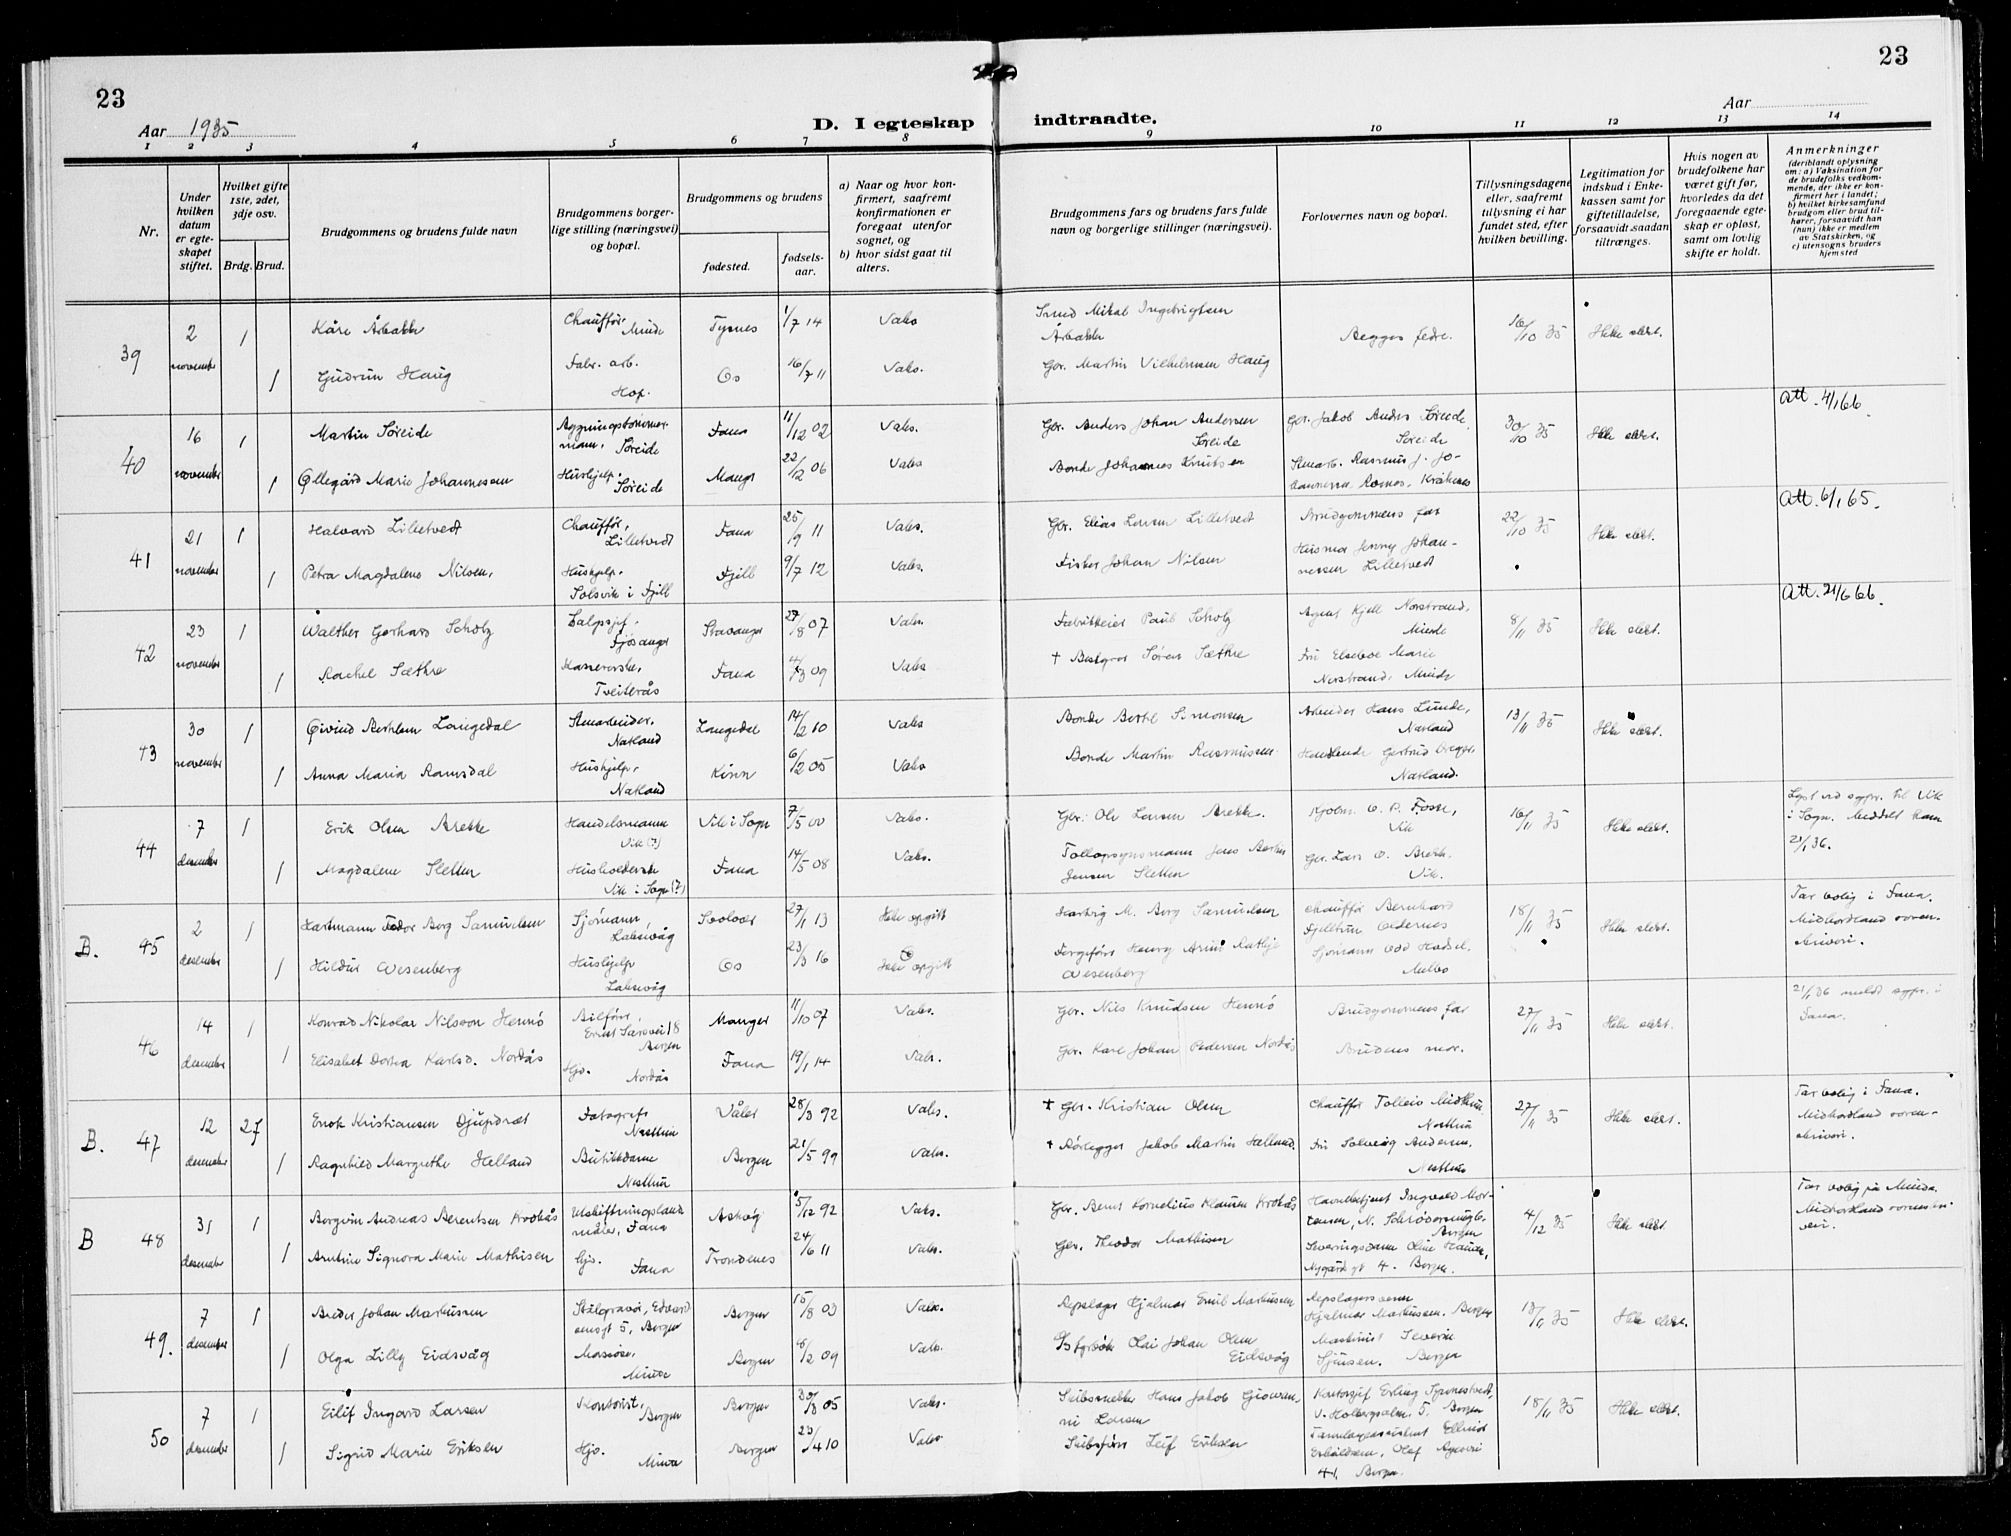 23
23
Aar 1935
D. I egteskap indtraadte.
Aar
1 2 3 4 5 6 7 8 9 10 11 12 13 14
Nr.
Under hvilken datum er egteskapet stiftet.
Hvilket gifte 1ste, 2det, 3dje osv.
Brdg. Brud.
Brudgommens og brudens fulde navn
Brudgommens borgerlige stilling (næringsvei) og bopæl.
Brudgommens og brudens
fødested.
fødselsaar.
a) Naar og hvor konfirmert, saafremt konfirmationen er foregaat utenfor sognet, og
b) hvor sidst gaat til alters.
Brudgommens fars og brudens fars fulde navn og borgerlige stillinger (næringsvei).
Forlovernes navn og bopæl.
Tillysningsdagene eller, saafremt tillysning ei har fundet sted, efter hvilken bevilling.
Legitimation for indskud i Enkekassen samt for giftetilladelse, forsaavidt saadan tiltrænges.
Hvis nogen av brudefolkene har været gift før, hvorledes da det foregaaende egteskap er opløst, samt om lovlig skifte er holdt.
Anmerkninger
(deriblandt oplysning om: a) Vaksination for de brudefolks vedkommende, der ikke er konfirmert her i landet; b) hvilket kirkesamfund brudgom eller brud tilhører, forsaavidt han (hun) ikke er medlem av Statskirken, og c) utensogns bruders hjemsted
39 2 november 1 Kåre Årbakke Chauffør, Minde Tysnes 1/7 14 Vaks Smed Mikal Ingebrigtsen Årbakke Begges fedre. 16/10 35 Ikke slekt.
1 Gudrun Haug Fabr. arb. Hop. Os 16/7 11 Vaks. Gbr. Martin Vilhelmsen Haug
Att. 4/1 66.
40 16 november 1 Martin Søreide Søreide Fana 11/12 02 Vaks. Gbr. Anders Johan Andersen Søreide Gbr. Jakob Anders Søreide, Søreide 30/10 35 Ikke slekt.
1 Øllegård Marie Johannesen Hushjelp. Søreide Manger 22/12 06 Vaks Bonde Johannes Knutsen Stenarb. Rasmus J. Johannessen Kråkenes
Att. 6/1 65.
41 21 november 1 Halvard Lilletvedt Chauffør, Lilletvedt Fana 25/9 11 Vaks. Gbr. Elias Larsen Lilletvedt Brudgommens far 22/10 35 Ikke slekt.
1 Petra Magdalena Nilsen, Hushjelp. Solsvik i Fjell Fjell 9/7 12 Vaks. Fisker Johan Nilsen Husmor Jenny Johannessen Lilletvedt
Att. 21/6 66.
42 23 november 1 Walther Gerhard Scholz Salgssjef, Fjøsanger Stavanger 27/8 07 Vaks. Fabrikkeier Paul Scholz Agent Kjell Norstrand, Minde 8/11 35 Ikke slekt.
1 Rachel Sæthre Kassererske, Tveiterås Fana 4/3 09 Vaks † Søren Sæthre Fru Marie Norstrand, Minde
43 30 november 1 Øivind Langedal Stenarbeider, Natland Langedal 14/2 10 Vaks Bonde Bertil Simonsen Arbeider Hans Lunde, Natland 13/11 35 Ikke slekt.
1 Anna Maria Ramsdal Hushjelp, Natland Kinn 6/2 05 Vaks Bonde Martin Rasmussen Gertrud Natland.
44 7 desember 1 Erik Olsen Brekke Handelsmann Vik (?) Vik i Sogn 7/5 00 Vaks. Gbr. Ole Larsen Brekke. O. P. Fosse, Vik 16/11 35 Ikke slekt. Lyst ved sogpr. til Vik i Sogn. Meddelt ham 21/1 36.
1 Magdalene Sletten Husholderske Vik i Sogn (?) Fana 14/5 08 Vaks. Tolloppsynsmann Jens Jensen Sletten Gbr. Lars O. Brekke. Vik.
B. 45 2 desember 1 Hartmann Fedor Berg Samuelsen Sjømann, Laksevåg Svolvær 27/1 13 Ikke opgitt Hartvig M. Berg Samuelsen Chauffør Bernhard Fjelltun 18/11 35 Ikke slekt. Tar bolig i Fana. Midhordland sorenskriveri.
1 Hildur Wesenberg Hushjelp Laksevåg Os 23/3 16 Ikke opgitt Fergefører Henry Wesenberg Sjømann Odd Hadsel, Melbo
46 14 desember 1 Konrad Nikolai Nilsson Hennø Bilfører, Ernst Sarsvei 18 Bergen Manger 11/10 07 Vaks. Gbr. Nils Knudsen Hennø Brudgommens far 27/11 35 Ikke slekt. 21/1 36 meldt sogpr. i Fana.
1 Elisabet Dortea Karlsd. Nordås Hjv. Nordås Fana 19/1 14 Vaks. Gbr. Karl Johan Pedersen Nordås Brudens mor.
B. 47 12 desember 27 Enok Kristiansen Djupdræt Fotograf Nesttun Våler 28/3 92 Vaks. † Gbr. Kristian Olsen Chauffør Tolleiv Midttun, Nesttun 27/11 35 Ikke slekt. Tar bolig i Fana. Midhordland sorenskriveri.
1 Ragnhild Margrethe Helland Butikkdame Nesttun Bergen 21/5 99 Vaks. † Rørlegger Jakob Martin Helland. Fru Solveig Andersen, Nesttun
B 48 31 desember 1 Bergvin Andreas Berentsen Krokås Utskiftningslandmåler, Fana Askvåg 5/12 92 Vaks. Gbr. Bernt Kornelius Klausen Krokås Havnebetjent Ingvald Mortensen, Bergen 4/12 35 Ikke slekt Tar bolig på Minde. Midhordland sorenskriveri.
1 Arntine Signora Marie Mathisen Hjv. Fana Trondenes 24/6 11 Vaks. Gbr. Theodor Mathisen Serveringsdame Nygårdsgt 4. Bergen.
49. 7 desember 1 Breder Johan Markussen Stålgravør, 5, Bergen Bergen 15/8 03 Vaks. Repslager Hjalmar Emil Markussen Repslagersvenn Hjalmar Markussen. Bergen 13/11 35 Ikke slekt.
1 Olga Lilly Eidsvåg Massøse, Minde Bergen 8/2 09 Vaks. Olai Johan Olsen Eidsvåg Maskinist Severin Bergen
50 7 desember 1 Eilif Ingard Larsen Kontorist, Bergen Bergen 30/3 05 Vaks. Skibsmekler Hans Jakob Larsen Kontorsjef Erling V. Holbergsalm. 5, Bergen 18/11 35 Ikke slekt.
1 Sigrid Marie Eriksen Hjv. Minde Bergen 23/4 10 Vaks Skibsfører Leif Eriksen Tannlegeassistent 41, Bergen.